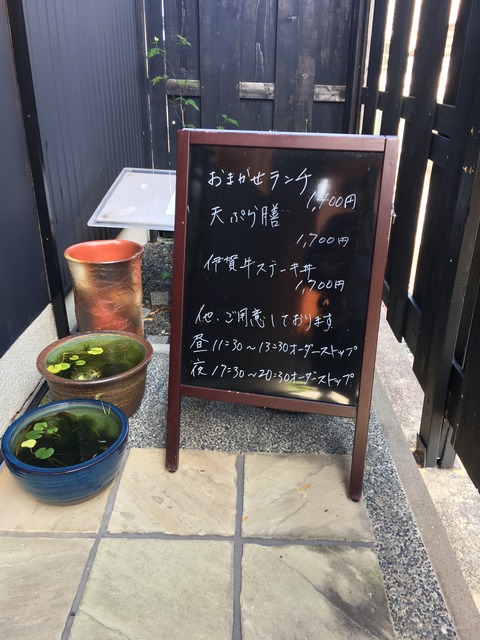 おまかせランチ
1,400円
天ぷら膳
1,700円
伊賀牛ステーキ丼
1,700円
他、ご用意しております
昼 11:30~13:30オーダーストップ
夜 17:30~20:30オーダーストップ